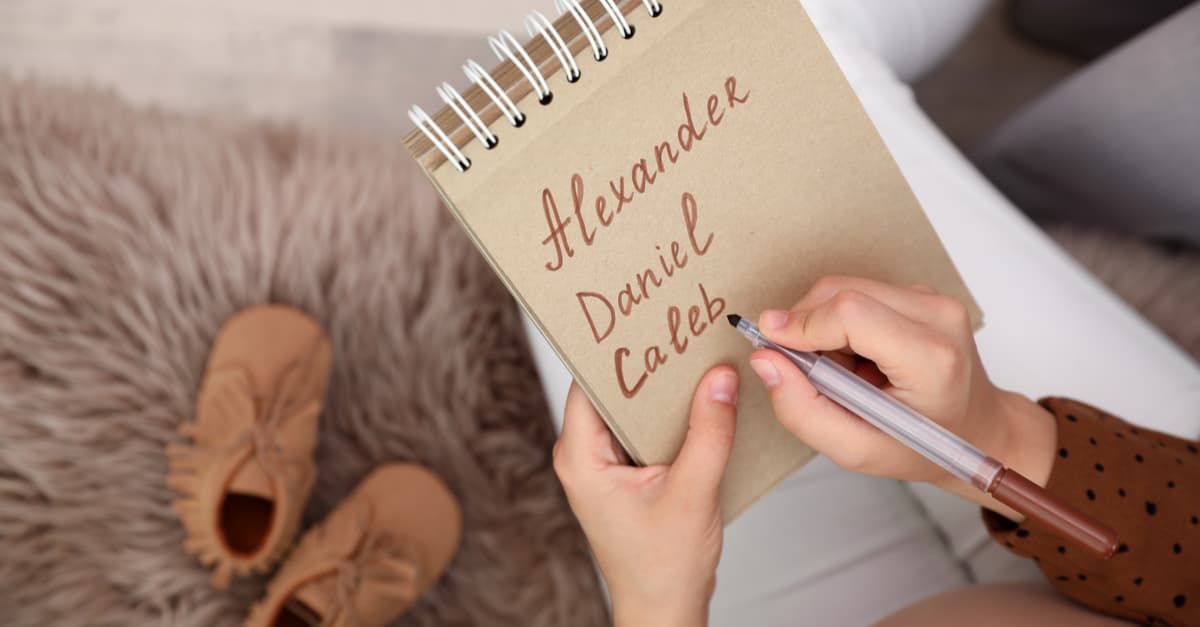 Alexander
Daniel
Caleb